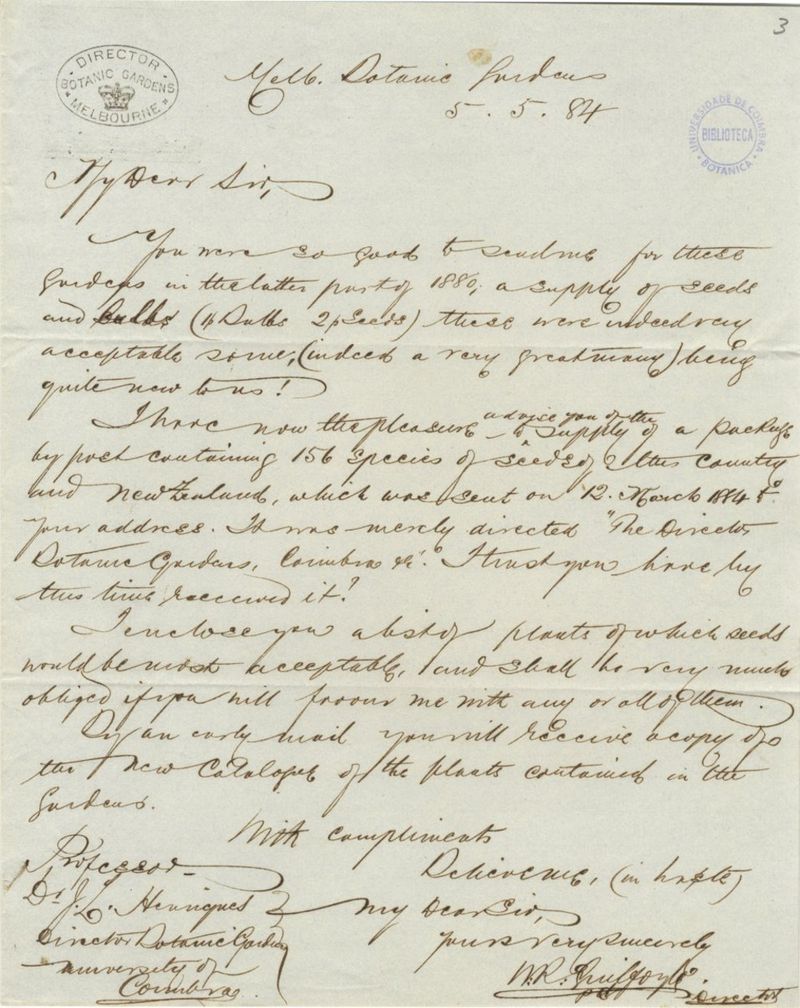 3
DIRECTOR
BOTANIC GARDENS
MELBOURNE
Melb. Botanic Gardens
5. 5. 84
UNIVERSIDADE DE COIMBRA
BIBLIOTECA
BOTANICA
My Dear Sir,
You were so good to send me for these
Gardens in the latter part of 1880, a supply of seeds
and bulbs (Bulbs Seeds) these were indeed very
acceptable some, (indeed a very great many) being
quite new to us!
I have now the pleasure to advise you of the supply of a package
by post containing 156 species of seeds of this Country
and New Zealand, which was sent on 12. March 1884 to
your address. It was merely directed "The Director
Botanic Gardens, Coimbra &c". I trust you have by
this time received it?
I enclose you a list of plants of which seeds
would be most acceptable, and shall be very much
obliged if you will favour me with any or all of them.
By an early mail you will receive a copy of
the new Catalogue of the plants contained in the
Gardens.
With compliments
Believe me, (in haste)
My Dear Sir,
yours very sincerely
W.R. Guilfoyle.
Director
Professor
Dr. J. Henriques
Director Botanic Garden
University of
Coimbra.